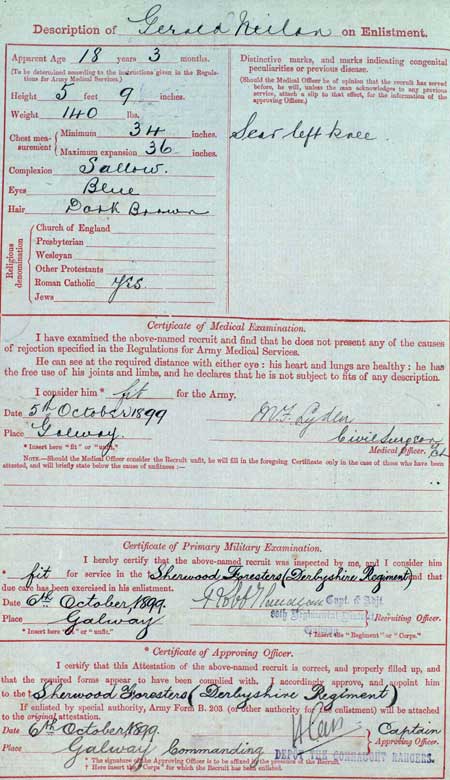 Description of Gerald Neilan on Enlistment.
Apparent Age 18 years 3 months.
(To be determined according to the instructions given in the Regulations for Army Medical Services.)
Height 5 feet 9 inches.
Weight 140 lbs.
Chest measurement { Minimum 34 inches.
Maximum expansion 36 inches.
Complexion Sallow.
Eyes Blue
Hair Dark Brown
Religious denomination
Church of England
Presbyterian
Wesleyan
Other Protestants
Roman Catholic Yes.
Jews
Distinctive marks, and marks indicating congenital
peculiarities or previous disease.
(Should the Medical Officer be of opinion that the recruit has served
before, he will, unless the man acknowledges to any previous
service, attach a slip to that effect, for the information of the
approving Officer.)
Scar left knee.
Certificate of Medical Examination.
I have examined the above-named recruit and find that he does not present any of the causes
of rejection specified in the Regulations for Army Medical Services.
He can see at the required distance with either eye : his heart and lungs are healthy : he has
the free use of his joints and limbs, and he declares that he is not subject to fits of any description.
I consider him * fit for the Army.
Date 5th October 1899
Place Galway.
Lyden
Civil Surgeon
Medical Officer.
* Insert here "fit" or "unfit."
NOTE.—Should the Medical Officer consider the Recruit unfit, he will fill in the foregoing Certificate only in the case of those who have been
attested, and will briefly state below the cause of unfitness :—
Certificate of Primary Military Examination.
I hereby certify that the above-named recruit was inspected by me, and I consider him
* fit for service in the Sherwood Foresters (Derbyshire Regiment) and that
due care has been exercised in his enlistment.
Date October 1899.
Place Galway
Capt. & Adjt
Regimental District
Recruiting Officer.
* Insert here "fit" or "unfit."
† Insert the "Regiment" or "Corps."
* Certificate of Approving Officer.
I certify that this Attestation of the above-named recruit is correct, and properly filled up, and
that the required forms appear to have been complied with. I accordingly approve, and appoint
him to the † Sherwood Foresters (Derbyshire Regiment)
If enlisted by special authority, Army Form B. 203 (or other authority for the enlistment) will be attached to
the original attestation.
Date 6th October 1899.
Place Galway
Commanding
Captain
Approving Officer.
DEPOT THE CONNAUGHT RANGERS.
* The signature of the Approving Officer is to be affixed in the presence of the Recruit.
† Here insert the "Corps" for which the Recruit has been enlisted.